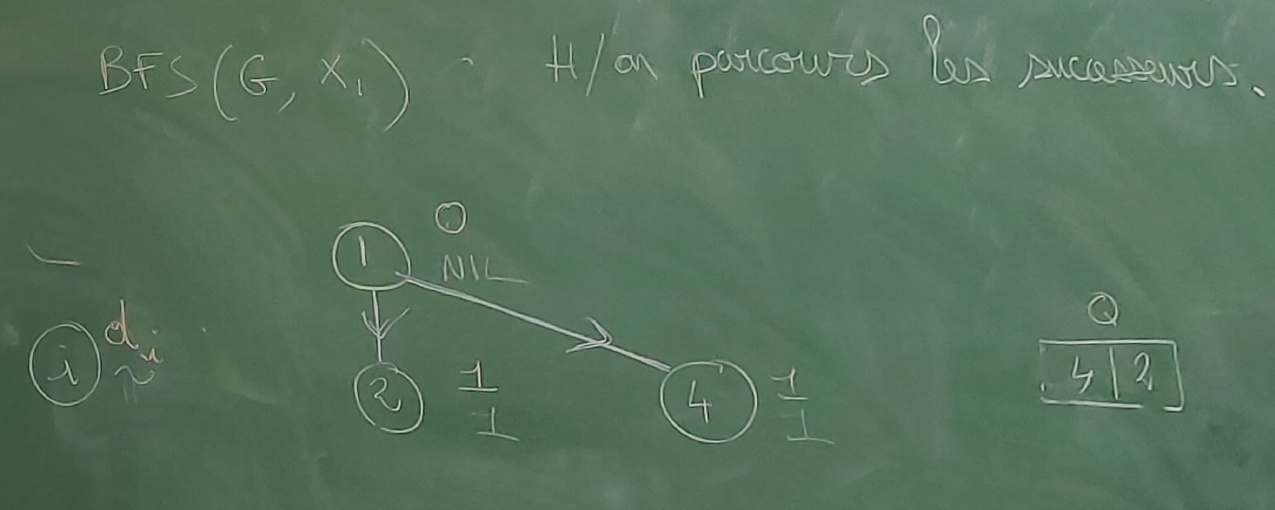 BFS(G, X₁) - H/on parcours les successeurs.
0
1 NIL
Q
i d
4|2
2 1 4 1
1 1